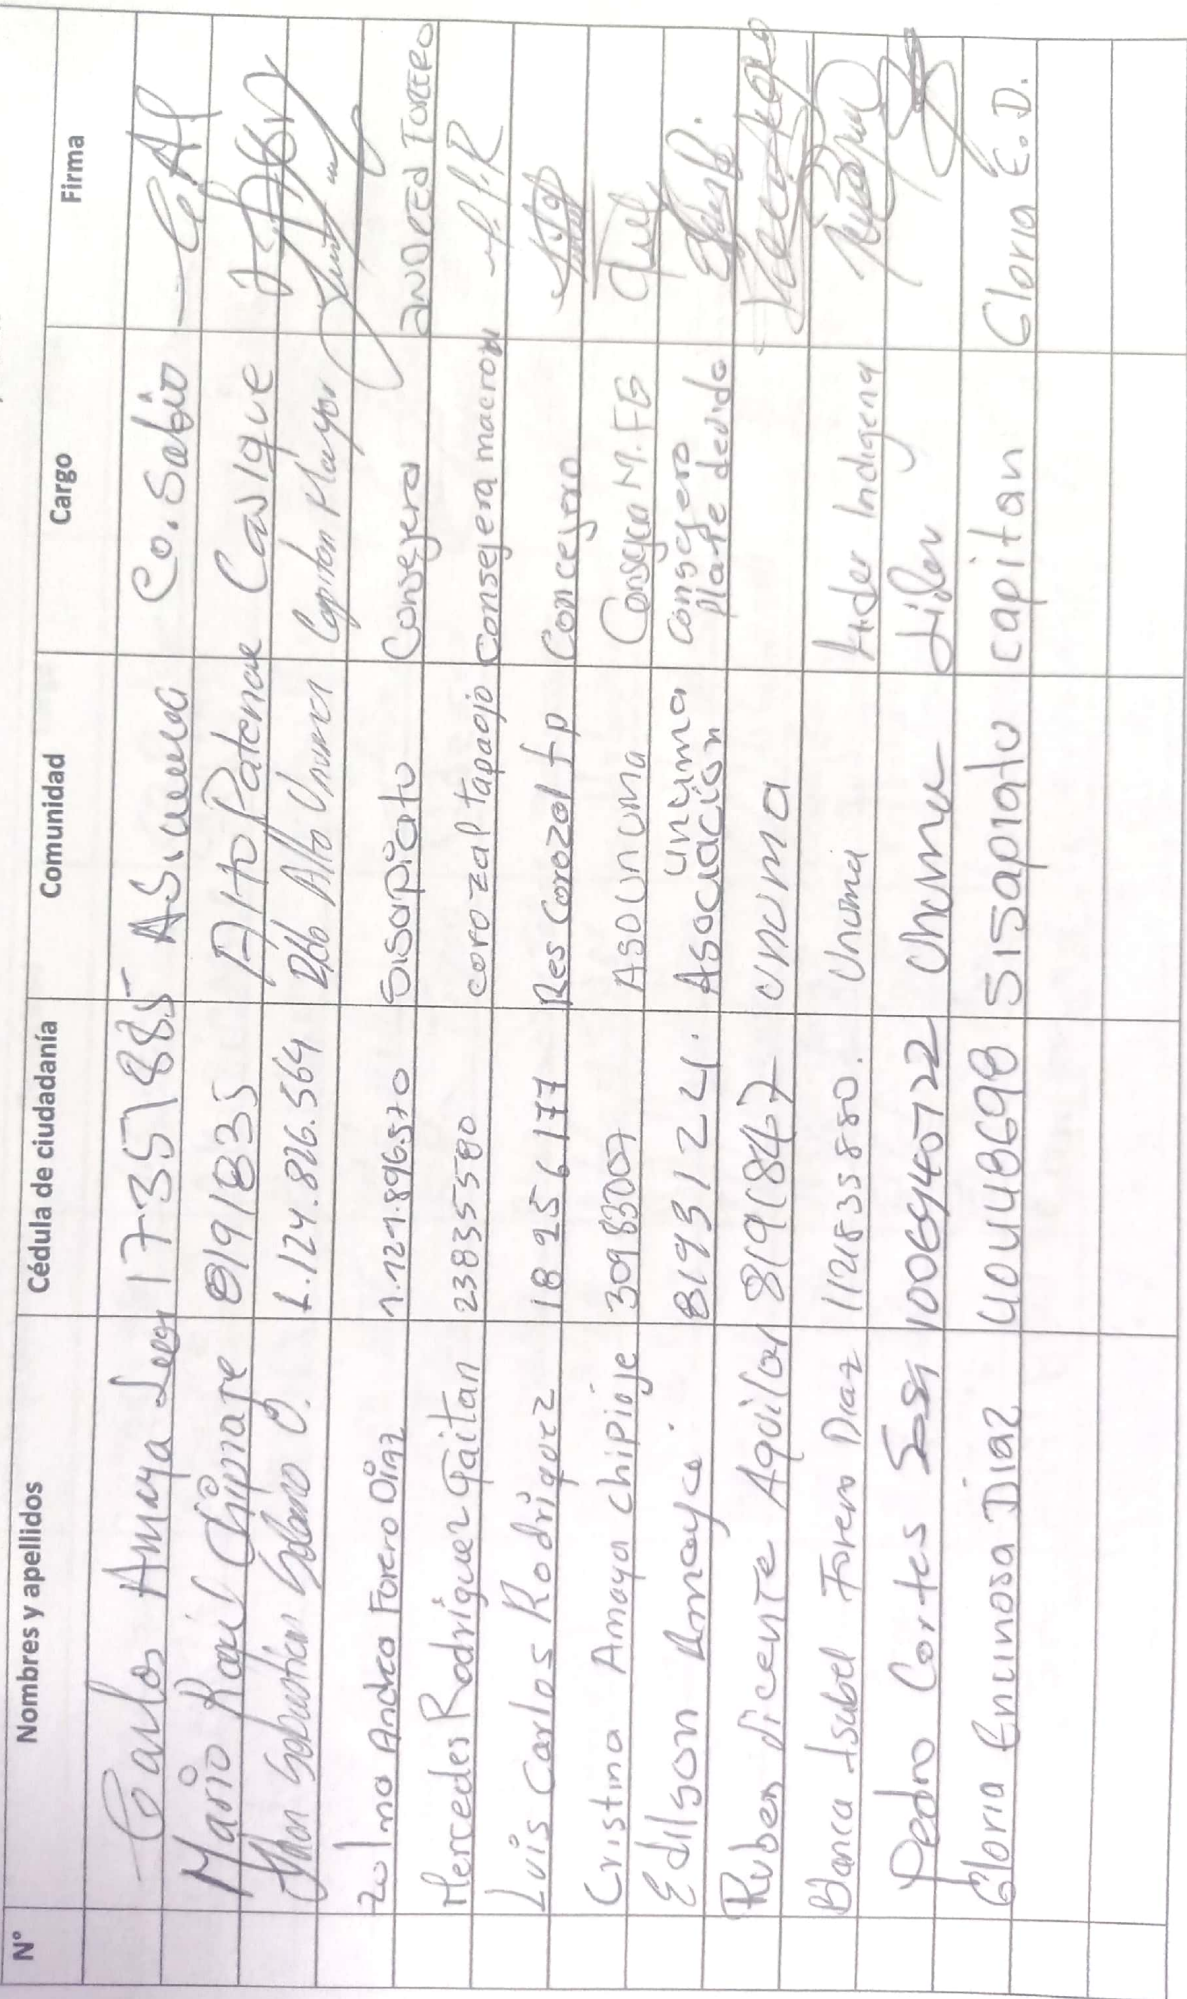 N° Nombres y apellidos Cédula de ciudadanía Comunidad Cargo Firma
Carlos Amaya 17351885 Co. Sabio
Mario Raul Chipiaje 8191835 Alto Casique
Jhon Sebastian Solano O. 1.124.826.564 Rdo Alto Unuma Capitan Mayor
Zulma Andrea Forero Diaz 1.121.896.570 Sisapiatu Consejera ANDREA FORERO
Mercedes Rodriguez Gaitan 23835580 corozal tapaojo consejera macrom M.R
Luis Carlos Rodriguez 18256177 Res Corozal tp Concejero
Cristina Amaya Chipiaje 30983007 Asounuma Consejera M.FG
Edilson Amaya 8193124 Asociacion unuma consejero plan de vida
Ruben dicente Aguilar 8191847 unuma
Blanca Isabel Forero Diaz 1121835880. Unuma Lider Indigena
Pedro Cortes 1006940722 Unuma Lider
Gloria Encinosa Diaz 40448698 Sisapiatu capitan Gloria E.D.